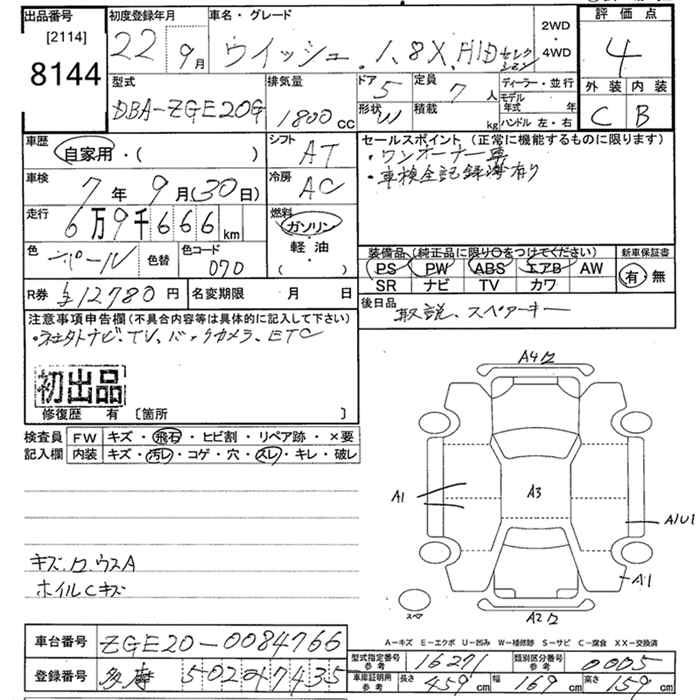 出品番号
[2114]
8144
初度登録年月
22 9月
車名・グレード
ウイッシュ 1.8X HIDセレクション
2WD
・
4WD
評価点
4
外装 内装
C B
型式
DBA-ZGE20G
排気量
1800cc
ドア 5
形状 W
定員 7人
積載 kg
ディーラー・並行
モデル年式 年
ハンドル 左・右
車歴
自家用・( )
シフト
AT
車検
7年 9月(30日)
冷房
AC
走行
6万9千666km
燃料
ガソリン
軽油
( )
色 パール
色替
色コード
070
R券 ¥12780円
名変期限 月 日
セールスポイント(正常に機能するものに限ります)
・ワンオーナー車
・車検全記録簿有り
装備品(純正品に限り○をつけてください)
PS PW ABS エアB AW
SR ナビ TV カワ
新車保証書
有 無
後日品
取説、スペアーキー
注意事項申告欄(不具合内容等は具体的に記入して下さい)
・社外ナビ.TV、バックカメラ、ETC
初出品
修復歴 有 〔箇所 〕
検査員
記入欄
FW キズ・飛石・ヒビ割・リペア跡・×要
内装 キズ・汚レ・コゲ・穴・スレ・キレ・破レ
キズ.ロ.ウスA
ホイルCキズ
A4
A1
A3
A1U1
A1
A2
スペア
A−キズ E−エクボ U−凹み W−補修跡 S−サビ C−腐食 XX−交換済
車台番号 ZGE20-0084766
登録番号 多摩 502 0 7435
型式指定番号 参考 16271
類別区分番号 参考 0005
車庫証明用 参考 長さ 459cm 幅 169cm 高さ 159cm